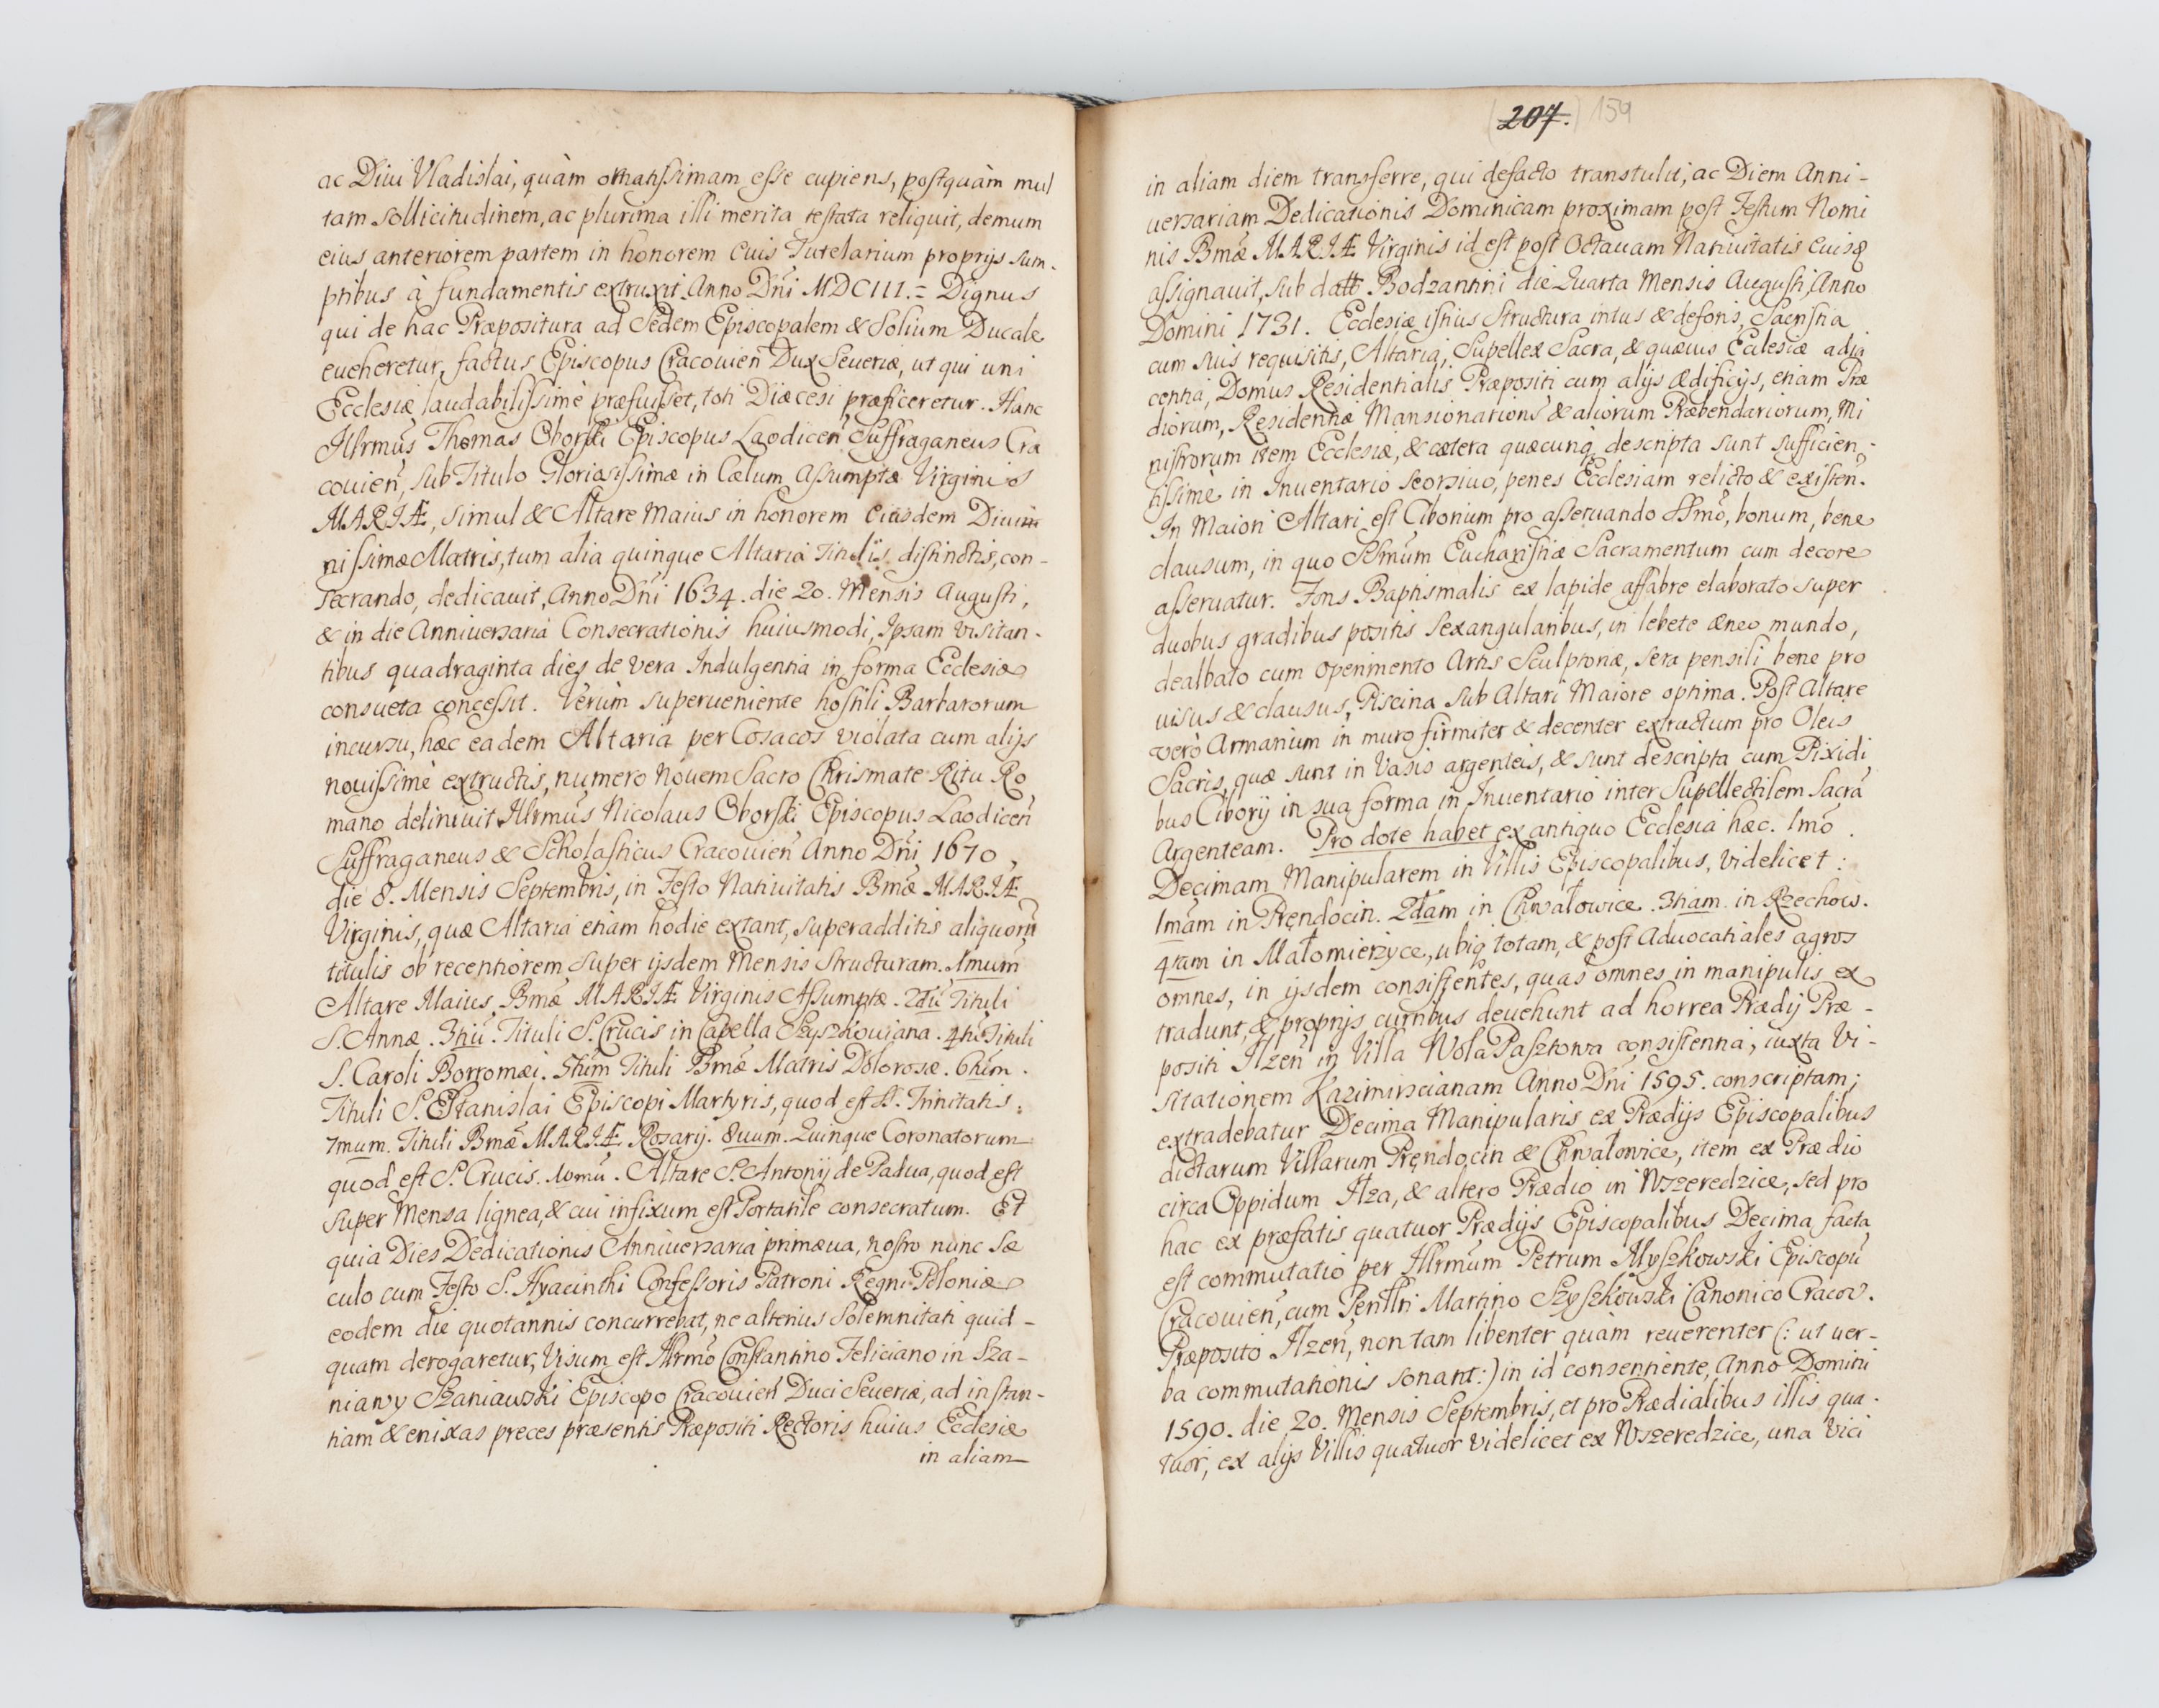 ac Divi Vladislai, quàm ornatissimam esse cupiens, postquàm mul
tam sollicitudinem, ac plurima illi merita testata reliquit, demum
eius anteriorem partem in honorem Cuis Tutelarium proprijs sum-
ptibus à fundamentis extruxit. Anno Dni MDCIII. = Dignus
qui de hac Præpositura ad Sedem Episcopalem & Solium Ducale
eveheretur, factus Episcopus Cracovien Dux Severiæ, ut qui uni
Ecclesiæ laudabilissimè præfuisset, toti Diæcesi præficeretur. Hanc
Illrmus Thomas Oborski Episcopus Laodicen Suffraganeus Cra
covien, sub Titulo Gloriosissimæ in Cælum Assumptæ Virginis
MARIÆ, simul & Altare Maius in honorem eiusdem Divi
nissimæ Matris, tum alia quinque Altaria Titulis distinctis, con-
secrando, dedicavit, Anno Dni 1634. die 20. Mensis Augusti,
& in die Anniversaria Consecrationis huiusmodi, Ipsam visitan-
tibus quadraginta dies de vera Indulgentia in forma Ecclesiæ
consueta concessit. Verùm superveniente hostili Barbarorum
incursu, hæc eadem Altaria per Cosacos violata cum alijs
novissimè extructis, numero Novem Sacro Chrismate Ritu Ro
mano delinivit Illrmus Nicolaus Oborski Episcopus Laodicen
Suffraganeus & Scholasticus Cracovien Anno Dni 1670
die 8. Mensis Septembris, in Festo Nativitatis Bmæ MARIÆ
Virginis, quæ Altaria etiam hodie extant, superadditis aliquorũ
titulis ob recentiorem super ijsdem Mensis Structuram. 1mum
Altare Maius, Bmæ MARIÆ Virginis Assumptæ. 2dũ Tituli
S. Annæ. 3tiũ. Tituli S. Crucis in Capella Szyszkoviana. 4tũ Tituli
S. Caroli Borromæi. 5tũm Tituli Bmæ Matris Dolorosæ. 6tũm.
Tituli S. Stanislai Episcopi Martyris, quod est SS. Trinitatis.
7mum. Tituli Bmæ MARIÆ Rosarij. 8vum. Quinque Coronatorum
quod est S. Crucis. Altare S. Antonij de Padua, quod est
super Mensa lignea, & cui infixum est Portatile consecratum. Et
quia Dies Dedicationis Anniversaria primæva, nostro nunc Sæ
culo cum Festo S. Hyacinthi Confessoris Patroni Regni Poloniæ
eodem die quotannis concurrebat, ne alterius solemnitati quid-
quam derogaretur, Visum est Illrmo Constantino Feliciano in Sza-
niawy Szaniawski Episcopo Cracovien Duci Severiæ, ad instan-
tiam & enixas preces præsentis Præpositi Rectoris huius Ecclesiæ
in aliam
207. 159
in aliam diem transferre, qui defacto transtulit, ac Diem Anni-
versariam Dedicationis Dominicam proximam post Festum Nomi
nis Bmæ MARIÆ Virginis id est post Octavam Nativitatis Euisq
assignavit, sub datt Bodzantini die Quarta Mensis Augusti, Anno
Domini 1731. Ecclesiæ istius Structura intus & deforis, Sacristia
cum suis requisitis, Altaria, Supellex Sacra, & quævis Ecclesiæ adja
centia, Domus Residentialis Præpositi cum alijs Ædificijs, etiam Præ
diorum, Residentiæ Mansionarions & aliorum Præbendariorum, Mi
nistrorum item Ecclesiæ, & cætera quæcunq descripta sunt sufficien-
tissimè in Inventario seorsivo, penes Ecclesiam relicto & existen.
In Maiori Altari est Cibonium pro asservando SSmo, bonum, bene
clausum, in quo SSmum Eucharistiæ Sacramentum cum decore
asservatur. Fons Baptismalis ex lapide affabre elaborato super
duobus gradibus positis sexangularibus, in lebete æneo mundo,
dealbato cum operimento Artis Sculptoriæ, sera pensili bene pro
visus & clausus, Piscina sub Altari Maiore optima. Post Altare
verò Armarium in muro firmiter & decenter extructum pro Oleis
Sacris, quæ sunt in Vasis argenteis, & sunt descripta cum Pixidi
bus Cibory in sua forma in Inventario inter Supellectilem Sacrã
Argenteam. Pro dote habet ex antiquo Ecclesia hæc. 1mo.
Decimam Manipularem in Villis Episcopalibus, videlicet:
1mam in Prędocin. 2dam in Chwałowice. 3tiam. in Rzechow.
4tam in Małomierzyce, ubiq totam, & post Advocatiales agros
omnes, in ijsdem consistentes, quas omnes in manipulis ex
tradunt, & proprijs curribus devehunt ad horrea Prædij Præ-
positi Ilzen in Villa Wola Pasztowa consistentia, iuxta Vi-
sitationem Kazimirscianam Anno Dni 1595. conscriptam;
extradebatur Decima Manipularis ex Prædijs Episcopalibus
dictarum Villarum Prędocin & Chwałowice, item ex Prædio
circa Oppidum Ilza, & altero Prædio in Wszeredzice, sed pro
hac ex præfatis quatuor Prædijs Episcopalibus Decima facta
est commutatio per Illrmum Petrum Myszkowski Episcopũ
Cracovien, cum Penlltri Martino Szyszkowski Canonico Cracov.
Præposito Ilzen, non tam libenter quàm reverenter (: ut ver-
ba commutationis sonant:) in id consentiente, Anno Domini
1590. die 20. Mensis Septembris, et pro Prædialibus illis qua-
tuor, ex alijs Villis quatuor videlicet ex Wszeredzice, una Vici